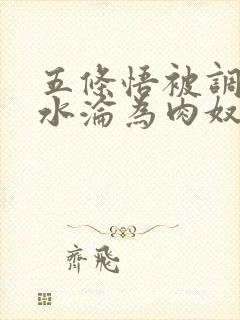 五條悟被調
水淪為肉奴
齊飛